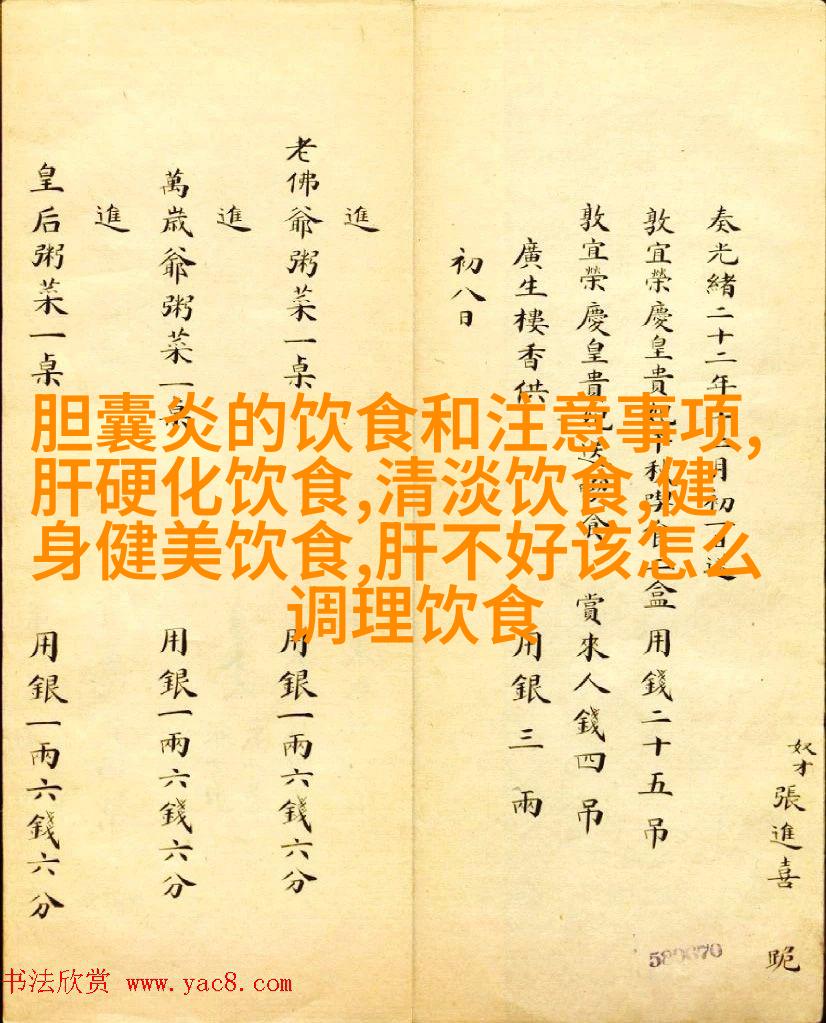 奴才張進喜 跪
奏光緒二十二年 月初 進
敦宜榮慶皇貴妃 食一盒 用錢二十五吊
敦宜榮慶皇貴妃送 食 賞來人錢四吊
廣生樓香供 用銀三兩
初八日
進
老佛爺粥菜一桌 用銀一兩六錢六分
進
萬歲爺粥菜一桌 用銀一兩六錢六分
進
皇后粥菜一桌 用銀一兩六錢六分
胆囊炎的饮食和注意事项,
肝硬化饮食,清淡饮食,健
身健美饮食,肝不好该怎么
调理饮食
书法欣赏 www.yac8.com